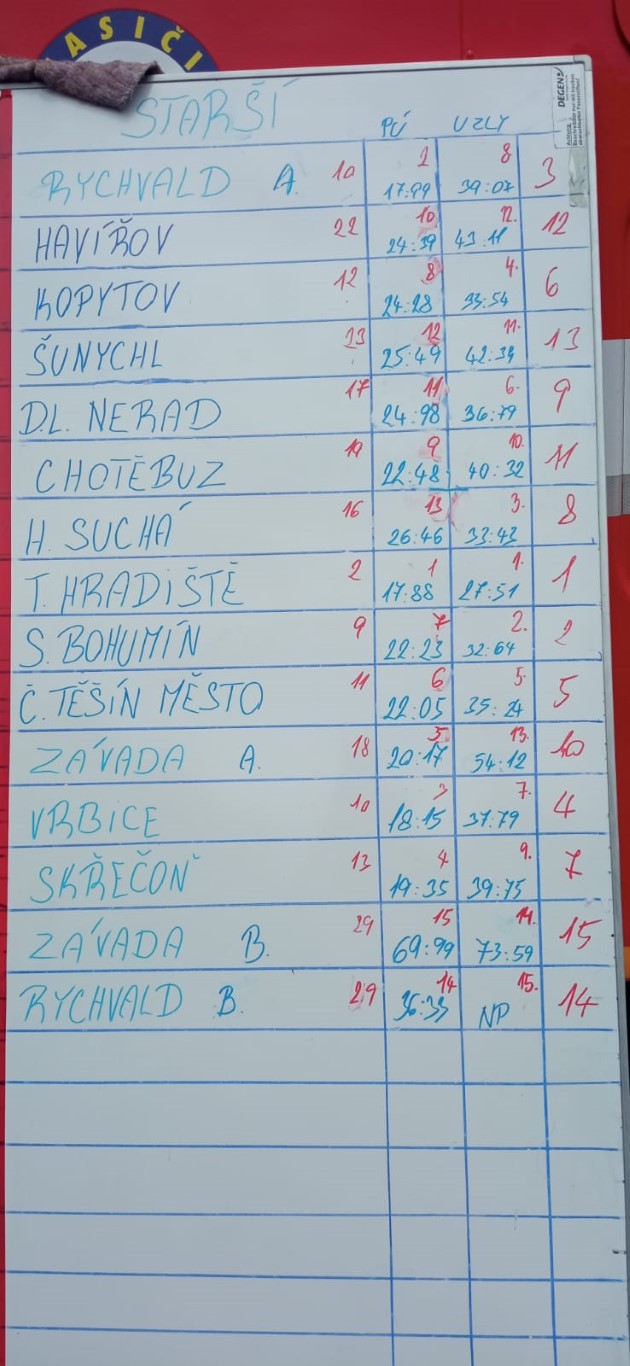 ASIČI
STARŠÍ PÚ UZLY
DEGEN
RYCHVALD A. 10 2 17:99 8 39:07 3
HAVÍŘOV 22 10. 24:39 12. 43:11 12
KOPYTOV 12 8 24:28 4. 33:54 6
ŠUNYCHL 23 12 25:49 11. 42:34 13
D.L. NERAD 17 11 24:98 6. 36:79 9
CHOTĚBUZ 19 9 22:48 10. 40:32 11
H. SUCHÁ 16 13 26:46 3. 33:43 8
T. HRADIŠTĚ 2 1 17:88 1. 27:51 1
S. BOHUMÍN 9 7 22:23 2. 32:64 2
Č. TĚŠÍN MĚSTO 11 6 22:05 5. 35:24 5
ZÁVADA A. 18 5 20:17 13. 54:12 10
VRBICE 10 3 18:15 7. 37:79 4
SKŘEČOŇ 13 4 19:35 9. 39:75 7
ZÁVADA B. 29 15 69:99 14. 73:59 15
RYCHVALD B. 29 14 36:33 15. NP 14